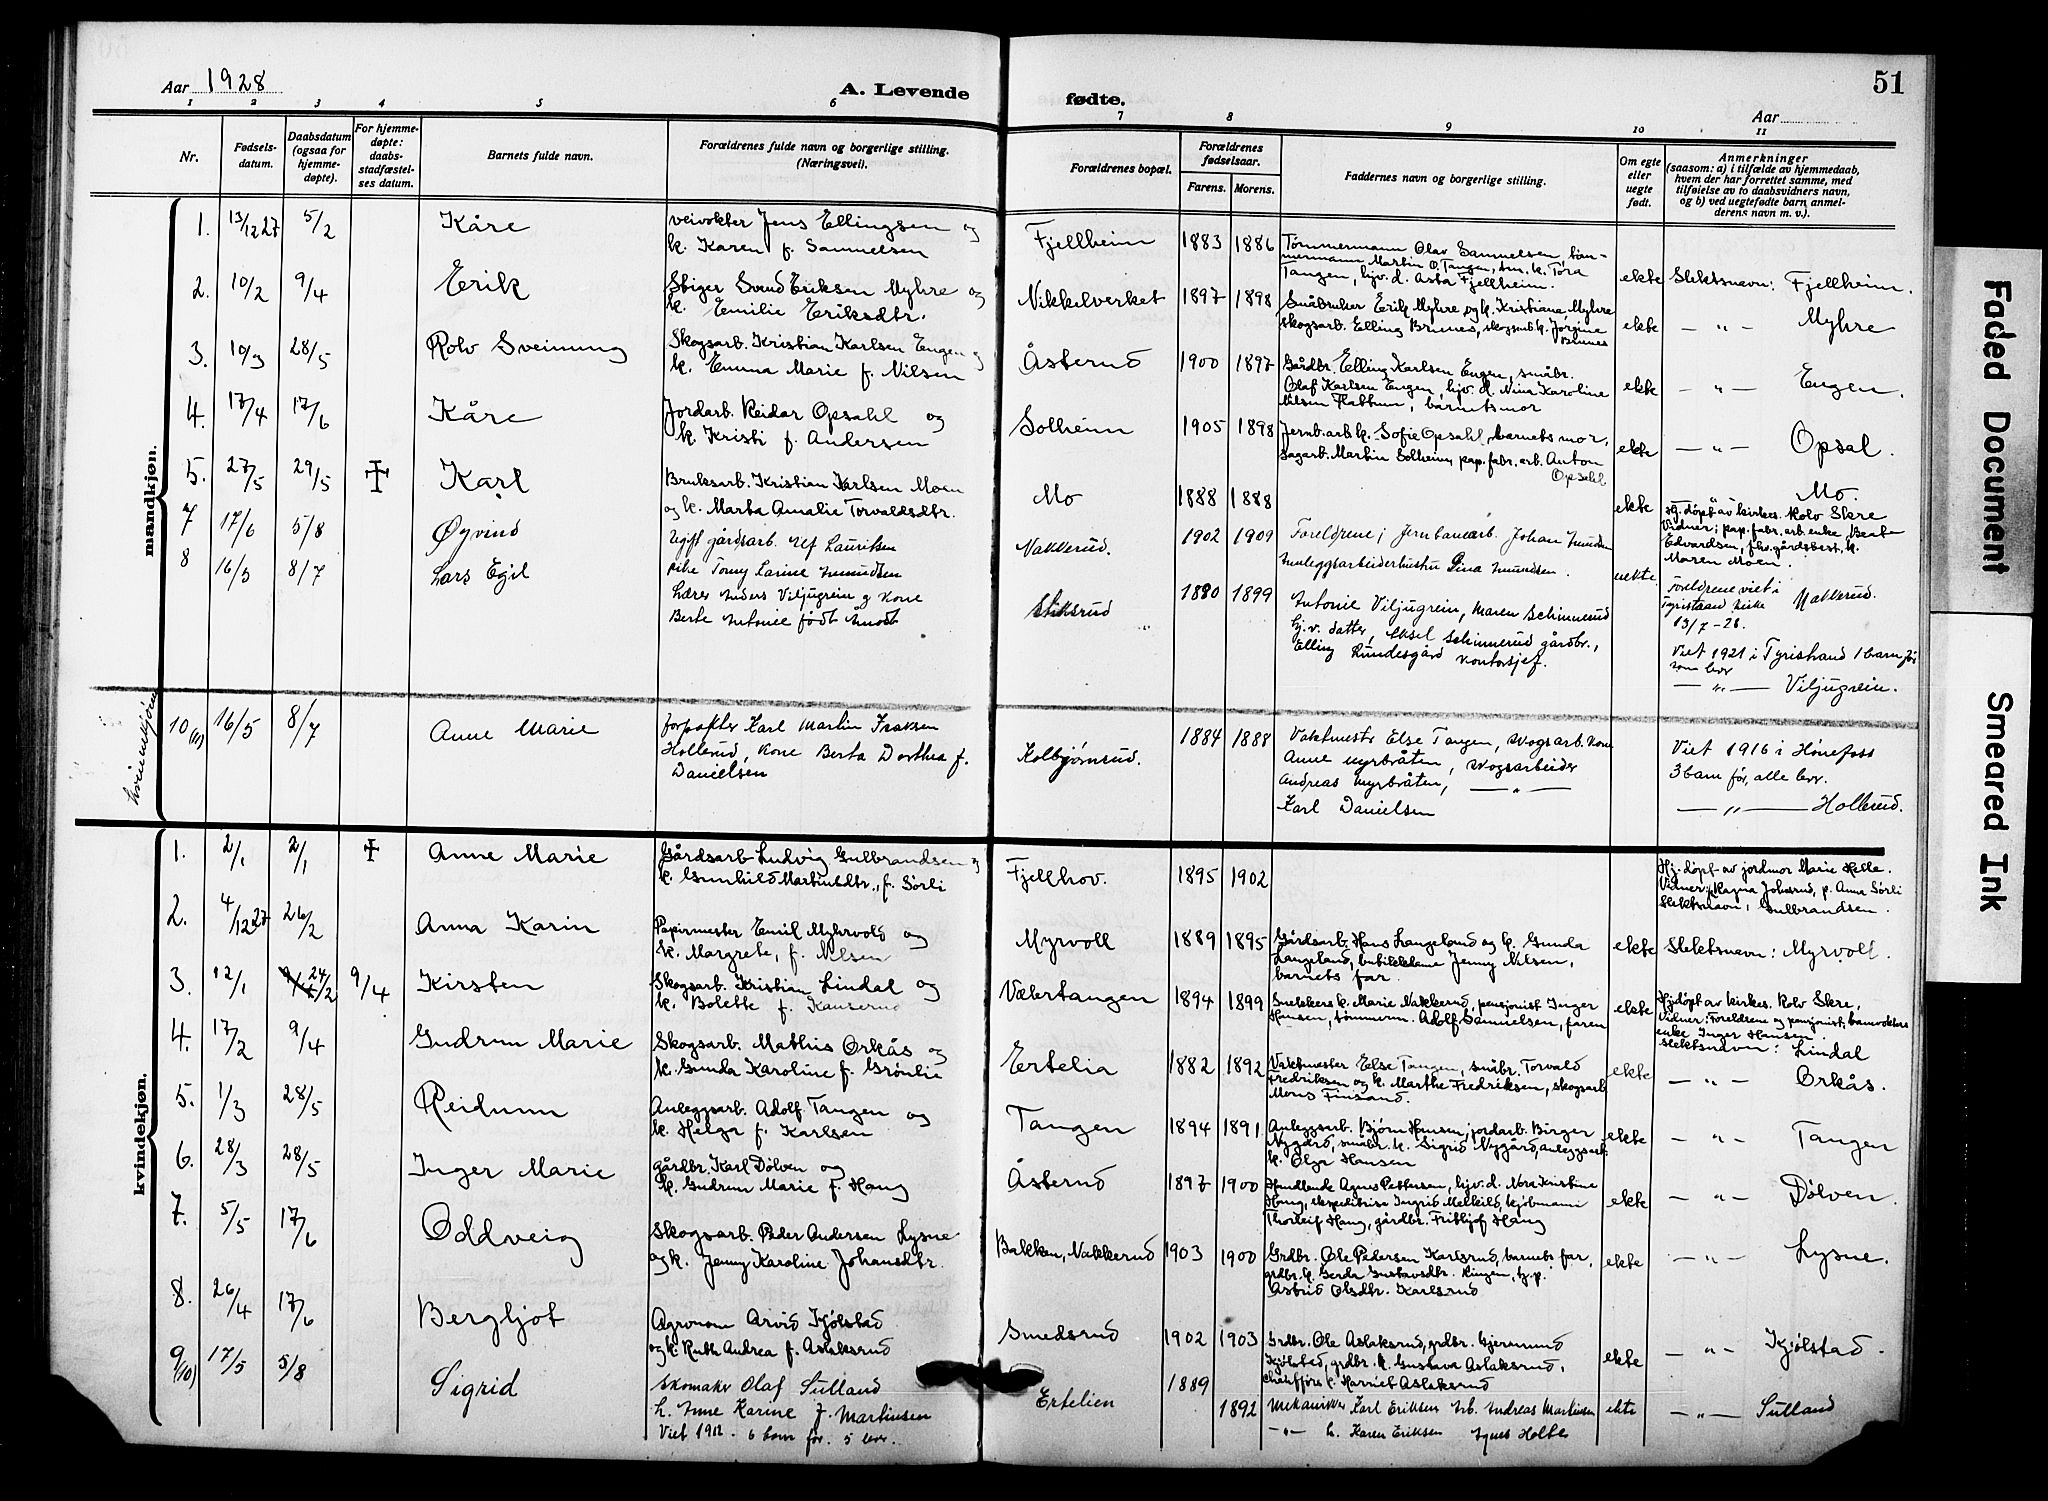 Aar 1928
A. Levende
fødte.
51
Aar
1 2 3 4 5 6 7 8 9 10 11
Nr.
Fødsels-
datum.
Daabsdatum
(ogsaa for
hjemme-
døpte).
For hjemme-
døpte:
daabs-
stadfæstel-
ses datum.
Barnets fulde navn.
Forældrenes fulde navn og borgerlige stilling.
(Næringsvei).
Forældrenes bopæl.
Forældrenes
fødselsaar.
Farens. Morens.
Faddernes navn og borgerlige stilling.
Om egte
eller
uegte
født.
Anmerkninger
(saasom: a) i tilfælde av hjemmedaab,
hvem der har forrettet samme, med
tilføielse av to daabsvidners navn,
og b) ved uegtefødte barn, anmel-
derens navn m. v.).
mandkjøn.
1. 13/12 27 5/2 Kåre
veivokter Jens Ellingsen og
k. Karen f. Samuelsen
Fjellheim 1883 1886
Tømmermann Olav Samuelsen, tøm-
mermann Martin O. Tangen, tm. k. Tora
Tangen, hjv. d. Asta Fjellheim.
ekte Slektsnavn: Fjellheim.
2. 10/2 9/4 Erik
Stiger Svend Eriksen Myhre og
k. Emilie Eriksdtr.
Nikkelverket 1897 1898
Småbruker Erik Myhre og k. Kristiane Myhre
skogsarb. Elling Brunes, skogsarb. k. Jørgine
Brunes
ekte — " — Myhre
3. 10/3 28/5 Rolv Sveinung
Skogsarb. Kristian Karlsen Engen og
k. Emma Marie f. Nilsen
Åsterud 1900 1897
Gårdbr. Elling Karlsen Engen, småbr.
Olaf Karlsen Engen, hjv. d. Nina Karoline
Nilsen Flattum, barnets mor
ekte — " — Engen.
4. 17/4 17/6 Kåre
Jordarb. Reidar Opsahl og
k. Kristi f. Andersen
Solheim 1905 1898
Jernb. arb. k. Sofie Opsahl, barnets mor,
sagarb. Martin Solheim, pap. fabr. arb. Anton
Opsahl
ekte — " — Opsal.
5. 27/5 29/5 Karl
Bruksarb. Kristian Karlsen Moen
og k. Marta Amalie Torvaldsdtr.
Mo 1888 1888
ekte Mo.
Hj. døpt av kirkes. Rolv Skre
Vidner: pap. fabr. arb. enke, Beate
Edvardsen, fhv. gårdsbest. k.
Maren Moen.
7 17/6 5/8 Øyvind
Ugift gårdsarb. Alf Lauritsen
pike Tomy Larine Amundsen
Nakkerud. 1902 1909
Foreldrene; Jernbanearb. Johan Amundsen
Anleggsarbeiderhustru Lina Amundsen.
uekte
Foreldrene viet i
Tyristrand kirke
13/7-28.
Nakkerud.
8 16/5 8/7 Lars Egil
Lærer Anders Viljugrein og kone
Berte Antonie født Amodt
Stiksrud 1880 1899
Antonie Viljugrein, Maren Schinnerud
hj. v. datter, Aksel Schinnerud gårdbr.,
Elling Lundesgård kontorsjef.
Viet 1921 i Tyristrand 1 barn før
som lever
— " — Viljugrein.
kvinnekjønn
10 (11) 16/5 8/7 Anne Marie
forpakter Karl Martin Isaksen
Hollerud, kone Berta Dorthea f.
Danielsen
Kolbjørnsrud. 1884 1888
Vaktmester Else Tangen, skogsarb. kone
Anne Myrbråten, skogsarbeider
Andreas Myrbråten, — " —
Karl Danielsen
Viet 1916 i Hønefoss
3 barn før, alle lever.
— " — Hollerud.
kvindekjøn.
1. 2/1 2/1 Anne Marie
Gårdsarb. Ludvig Gulbrandsen og
k. Gunhild Martinsdtr., f. Sørli
Fjellhov. 1895 1902
Hj. døpt av jordmor Marie Helle.
Vidner: Ragna Johnsrud, p. Anna Sørli
Slektsnavn: Gulbrandsen.
2. 4/12 27 26/2 Anna Karin
Papirmester Emil Myhrvold og
k. Margrete, f. Nilsen
Myrvoll 1889 1895
Gårdsarb. Hans Langeland og k. Gunda
Langeland, butikkdame Jenny Nilsen,
barnets far.
ekte Slektsnavn: Myrvoll.
3. 12/1 24/2 9/4 Kirsten
Skogsarb. Kristian Lindal og
k. Bolette f. Kanserud
Vælertangen 1894 1899
Snekkers k. Marie Nakkerud, pensjonist Inger
Hansen, tømmerm. Adolf Samuelsen, faren
ekte
Hj. døpt av kirkes. Rolv Skre,
Vidner: Foreldrene og pensjonist, banevokters
enke Inger Hansen.
Slektsnavn: Lindal
4. 17/2 9/4 Gudrun Marie
Skogsarb. Mathis Ørkås og
k. Gunda Karoline f. Grønlie
Ertelia 1882 1892
Vaktmester Else Tangen, småbr. Torvald
Fredriksen og k. Marthe Fredriksen, skogsarb.
Mons Finsand.
ekte — " — Ørkås.
5. 1/3 28/5 Reidunn
Anleggsarb. Adolf Tangen og
k. Helga f. Karlsen
Tangen 1894 1891
Anleggsarb. Bjørn Hansen, jordarb. Birger
Nygård, småbr. k. Sigrid Nygård, anleggsarb.
k. Olga Hansen
ekte — " — Tangen
6. 28/3 28/5 Inger Marie
gårdbr. Karl Dölven og
k. Gudrun Marie f. Haug
Åsterud 1897 1900
Handlende Agnes Pettersen, hjv. d. Nora Kristine
Haug, ekspeditrise Ingrid Melkild, kjøbmann
Thorleif Haug, gårdbr. Frithjof Haug
ekte — " — Dölven.
7. 5/5 17/6 Oddveig
Skogsarb. Peder Andersen Lysne
og k. Jenny Karoline Johansdtr.
Bakken, Nakkerud 1903 1900
Grdbr. Ole Pedersen Karlsrud, barnets far,
grdbr. k. Gerda Gustavsdtr. Ringen, hj. p.
Astrid Olsdtr. Karlsrud
ekte — " — Lysne.
8. 26/4 17/6 Bergljot
Agronom Arvid Kjølstad
og k. Ruth Andrea f. Aslaksrud
Smedsrud 1902 1903
Grdbr. Ole Aslaksrud, grdbr. Gjermund
Kjølstad, grdbr. k. Gustava Aslaksrud,
chaufførs k. Harriet Aslaksrud
ekte — " — Kjølstad.
9 (10) 17/5 5/8 Sigrid
Skomaker Olaf Sulland
h. Anne Karine f. Martinsen
Viet 1912. 6 barn før. 5 lever.
Ertelien 1889 1892
Mekaniker Karl Eriksen Arb. Andreas Martinsen
— " — h. Karen Eriksen Agnes Holte
ekte — " — Sulland
Faded Document
Smeared Ink